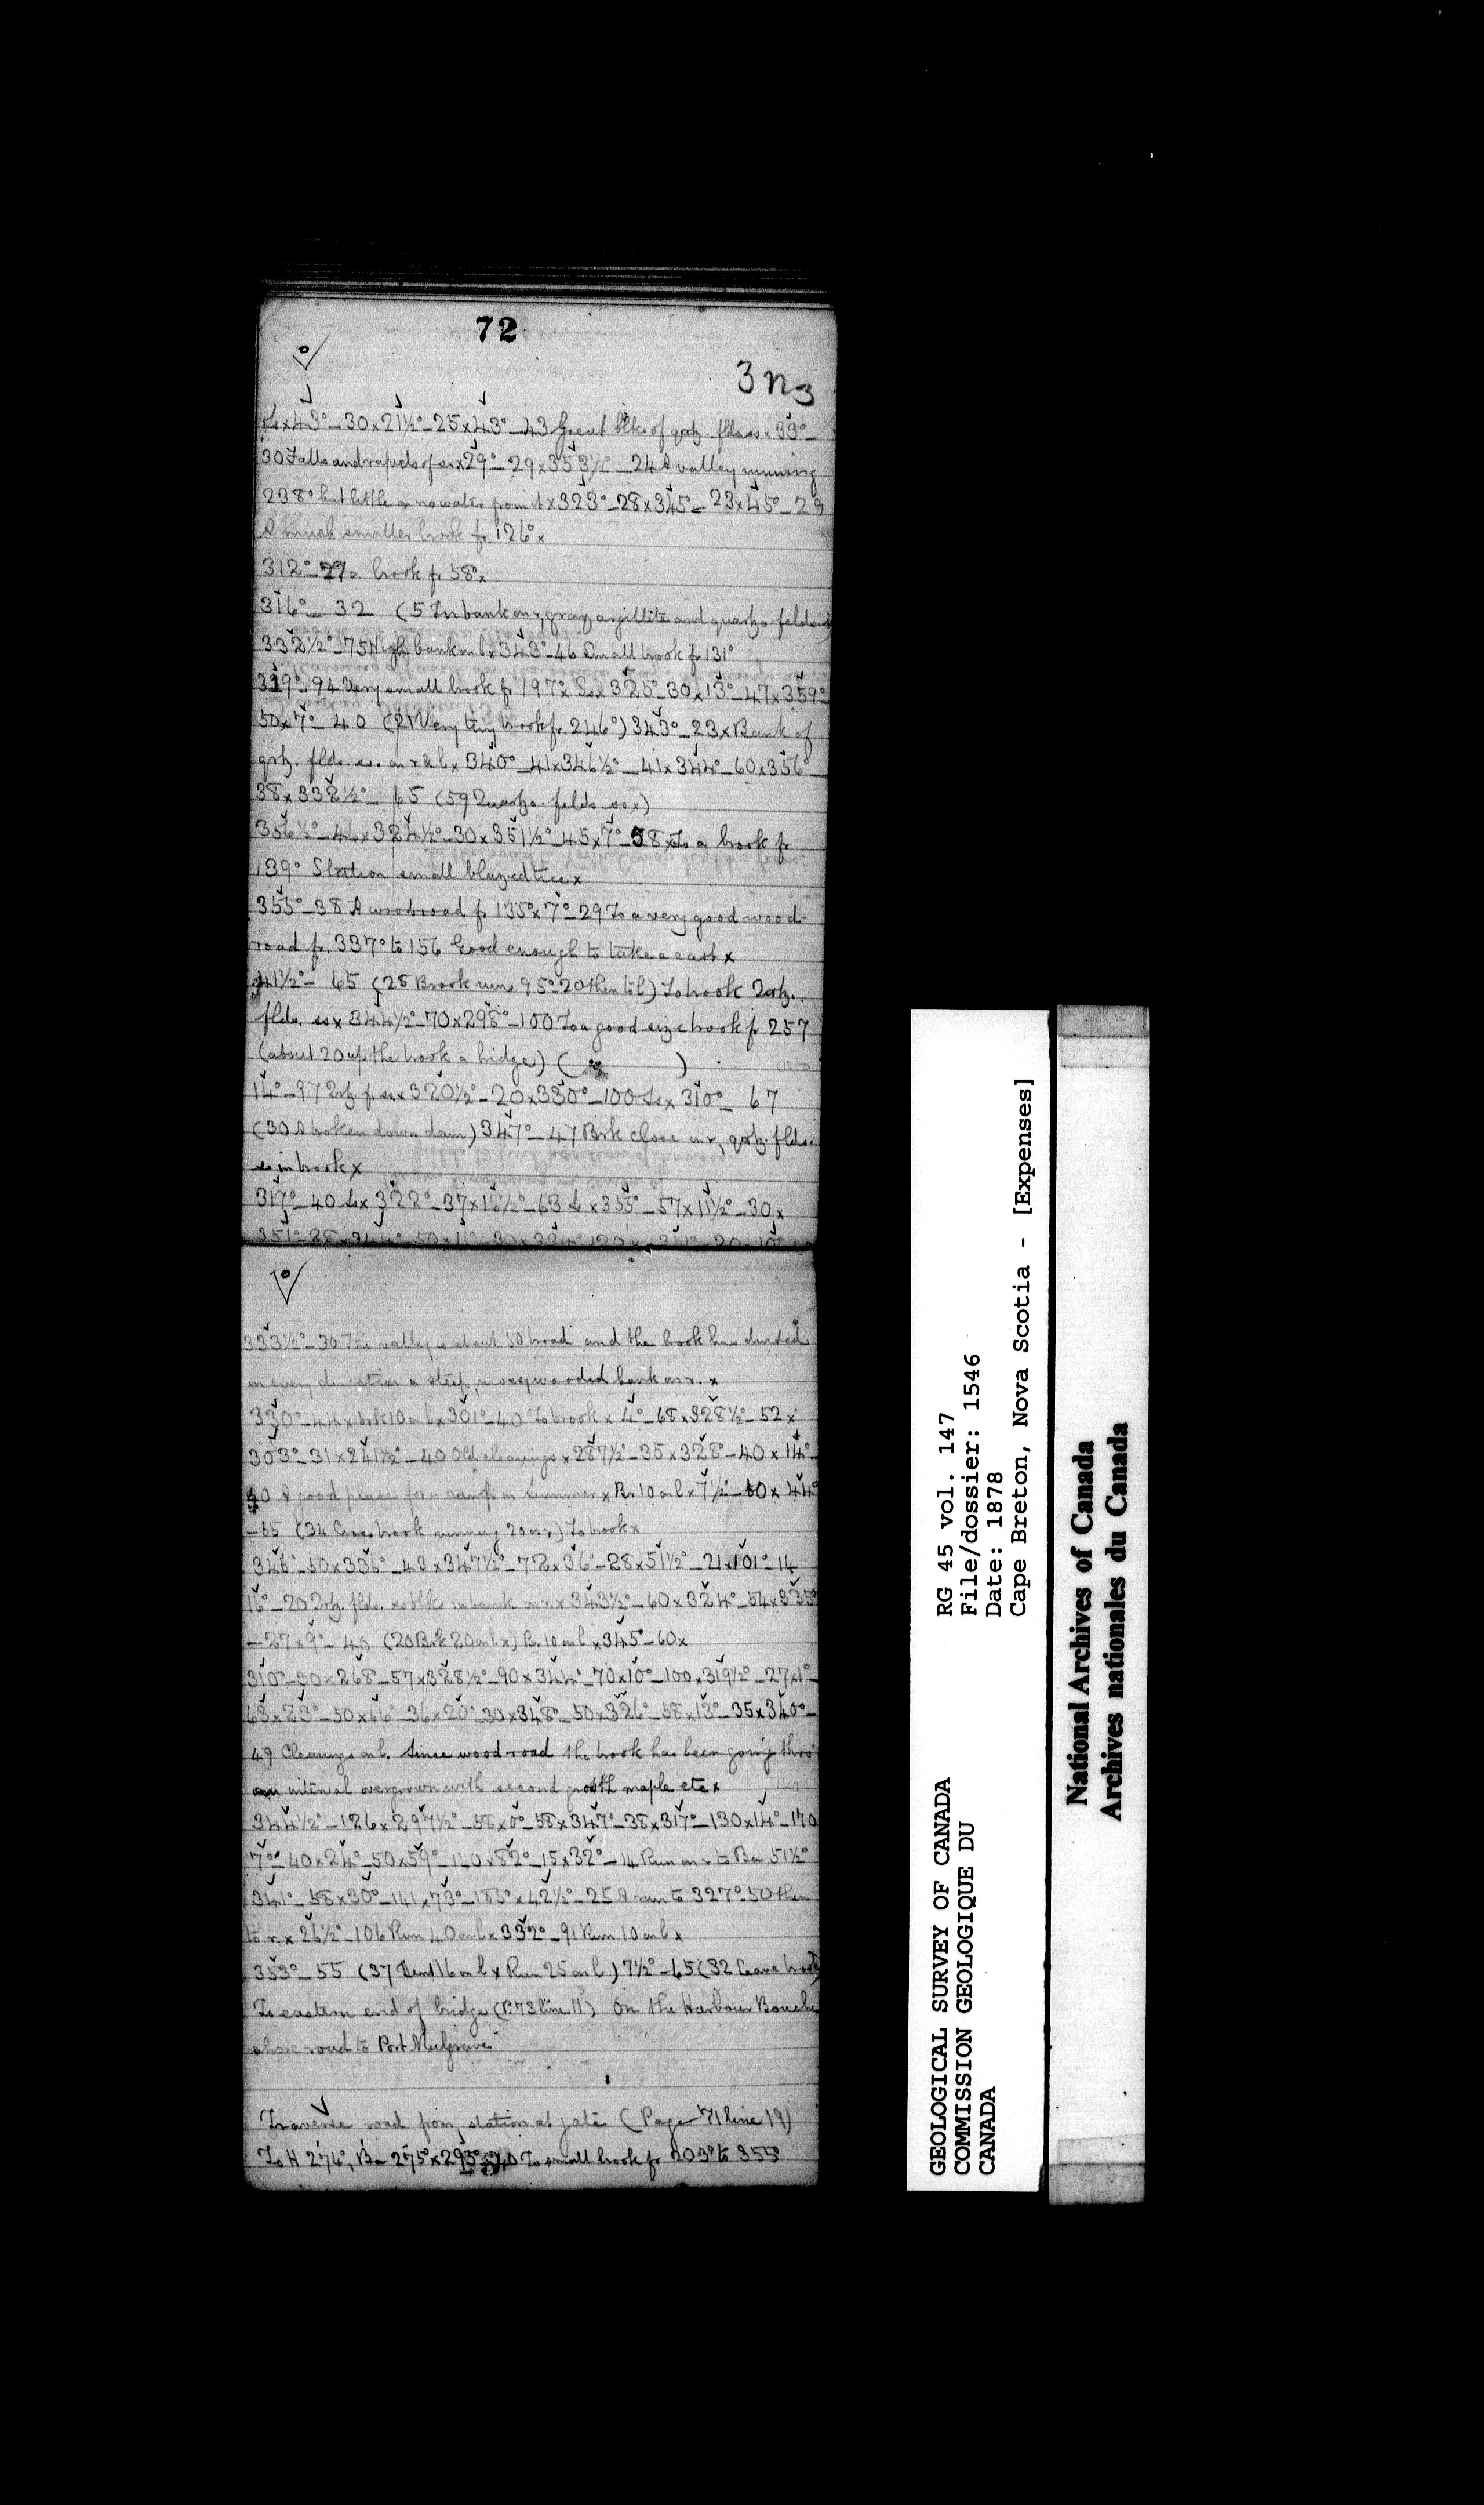 72
3n3
Ss x 43° – 30 x 21½° – 25 x 43° – 43 Great blks of qrtz. flds. ss x 33° –
30 Falls and rapids of ss x 29° – 29 x 353½° – 24 A valley running
238° but little or no water from it x 323° – 28 x 345° – 23 x 45° – 29
A much smaller brook fr. 126° x
312° – 27 a brook fr 58° x
316° – 32 (5 In bank on r, gray argillite and quartzo feldss.)
332½° – 75 High bank on l x 343° – 46 Small brook fr 131°
319° – 94 Very small brook fr 197° x Ss x 325° – 30 x 13° – 47 x 359° –
50 x 7° – 40 (21 Very tiny brook fr. 246°) 343° – 23 x Bank of
qrtz. flds. ss. on r & l x 340° – 41 x 346½° – 41 x 344° – 60 x 356° –
38 x 332½° – 65 (59 Quartzo. felds. ss x)
356½° – 46 x 324½° – 30 x 351½° – 45 x 7° – 58 x To a brook fr
139° Station small blazed tree x
355° – 38 A woodroad fr 135° x 7° – 29 To a very good wood-
road fr. 337° to 156 Good enough to take a cart x
41½° – 65 (28 Brook runs 95° – 20 then to l) To brook Qrtz.
flds. ss x 344½° – 70 x 298° – 100 To a good size brook fr 257
(about 20 up the brook a bridge) ( )
14° – 97 Qrtz. f. ss x 320½° – 20 x 330° – 100 Ss x 310° – 67
(30 A broken down dam) 347° – 47 Brk close on r, qrtz. flds.
ss in brook x
317° – 40 Ss x 322° – 37 x 16½° – 63 Ss x 355° – 57 x 11½° – 30 x
351° – 28 x 344° – 50 x
333½° – 30 The valley is about 50 broad and the brook has divided
in every direction a steep, mossy wooded bank on r. x
330° – 44 x brk 10 on l x 301° – 40 To brook x 4° – 68 x 328½° – 52 x
303° – 31 x 241½° – 40 Old clearings x 287½° – 35 x 328° – 40 x 14° –
40 A good place for a camp in Summer x Br 10 on l x 7½° – 50 x 44°
– 65 (34 Cross brook running 20 on r) To brook x
346° – 50 x 336° – 43 x 347½° – 72 x 36° – 28 x 51½° – 21 x 101° – 14
16° – 20 Qrtz. flds. ss blks in bank on r. x 343½° – 60 x 324° – 54 x 335°
– 27 x 9° – 40 (20 Brk 20 on l x) Br. 10 on l x 345° – 60 x
310° – 30 x 268° – 57 x 328½° – 90 x 344° – 70 x 10° – 100 x 319½° – 27 x 1° –
63 x 23° – 50 x 66° – 36 x 20° – 30 x 348° – 50 x 326° – 58 x 13° – 35 x 340° –
49 Clearings on l. Since wood-road the brook has been going thro'
an interval overgrown with second growth maple etc x
344½° – 126 x 297½° – 58 x 0° – 58 x 347° – 38 x 317° – 130 x 14° – 170
7° – 40 x 24° – 50 x 59° – 140 x 82° – 15 x 32° – 14 Run on r to Ba 51½°
341° – 58 x 30° – 141 x 73° – 185° x 42½° – 25 A run to 327° – 50 then
to r x 26½° – 106 Run 40 on l x 332° – 91 Run 10 on l x
353° – 55 (37 Went 16 on l x Run 25 on l) 7½° – 65 (32 Leave brook)
To eastern end of bridge (P. 73 line 11) On the Harbour Bouche
shore road to Port Mulgrave
Traverse road from station at gate (Page 71 line 19)
To H 274°, Ba 275° x 295° – 40 To small brook fr 203° to 355°
GEOLOGICAL SURVEY OF CANADA
COMMISSION GEOLOGIQUE DU
CANADA
RG 45 vol. 147
File/dossier: 1546
Date: 1878
Cape Breton, Nova Scotia - [Expenses]
National Archives of Canada
Archives nationales du Canada